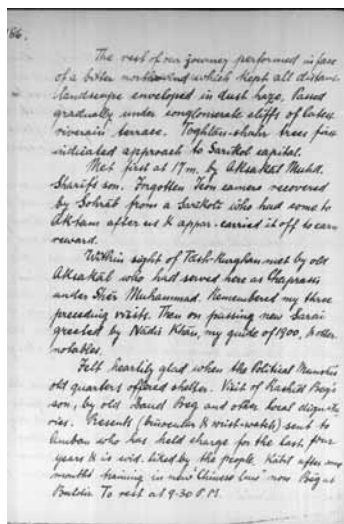 66.
The rest of our journey performed in face
of a bitter north wind which kept all distant
landscape enveloped in dust haze. Passed
gradually under conglomerate cliffs of latest
riverain terrace. Toghlan-shahr trees first
indicated approach to Sarikol capital.
Met first at 17 m. by Aksakal Muhd.
Sharif's son. Forgotten Icon camera recovered
by Sohrab from a Sarikoli who had come to
Ak-tam after us & appar. carried it off to earn
reward.
Within sight of Tash-kurghan met by old
Aksakal who had served here as Chaprassi
under Sher Muhammad. Remembered my three
preceding visits. Then on passing new Sarai
greeted by Nadir Khan, my guide of 1900, & other
notables.
Felt heartily glad when the Political Munshi's
old quarters offered shelter. Visit of Rashid Beg's
son, by old Daud Beg and other local dignita-
ries. Presents (binocular & wrist-watch) sent to
Amban who has held charge for the last four
years & is said liked by the people. Kabil after
months' training in new 'Chinese law' now Beg at
To rest at 9-30 P.M.